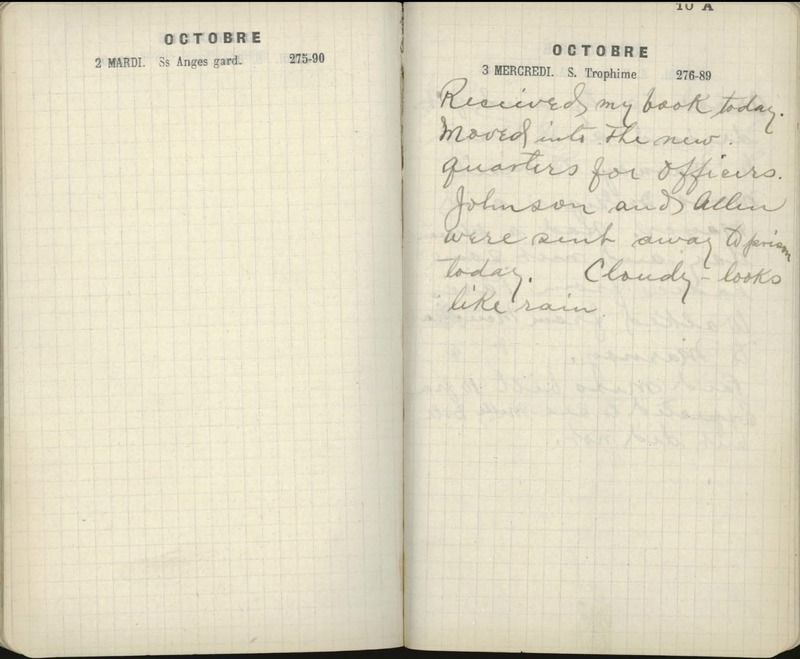 OCTOBRE
2 MARDI. Ss Anges gard. 275-90
10 A
OCTOBRE
3 MERCREDI. S. Trophime 276-89
Recieved my book today.
Moved into the new
quarters for officers.
Johnson and Allen
were sent away to prison
today. Cloudy - looks
like rain